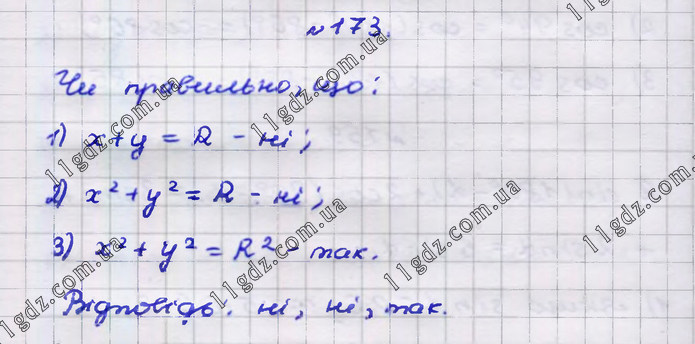 №173.
Чи правильно, що:
1) x+y = R - ні;
2) x² + y² = R - ні;
3) x² + y² = R² - так.
Відповідь. ні, ні, так.
11gdz.com.ua
11gdz.com.ua
11gdz.com.ua
11gdz.com.ua
11gdz.com.ua
11gdz.com.ua
11gdz.com.ua